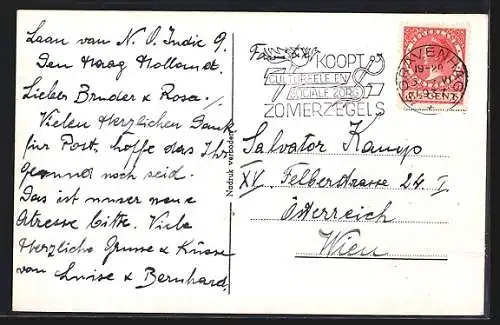 Laan van N. O. Indie 9.
Den Haag Holland.
Lieber Bruder & Rosa!
Vielen Herzlichen Dank
für Post, hoffe das Ihr
gesund noch seid.
Das ist unser neue
Adresse bitte. Viele
Herzliche Grüsse & Küsse
von Luise & Bernhard
Nadruk verboden
KOOPT
CULTUREELE EN
SOCIALE ZORG
ZOMERZEGELS
'S GRAVENHAGE
CENT
Salvator Kampo
XV. Felberstrasse 24. I
Österreich
Wien